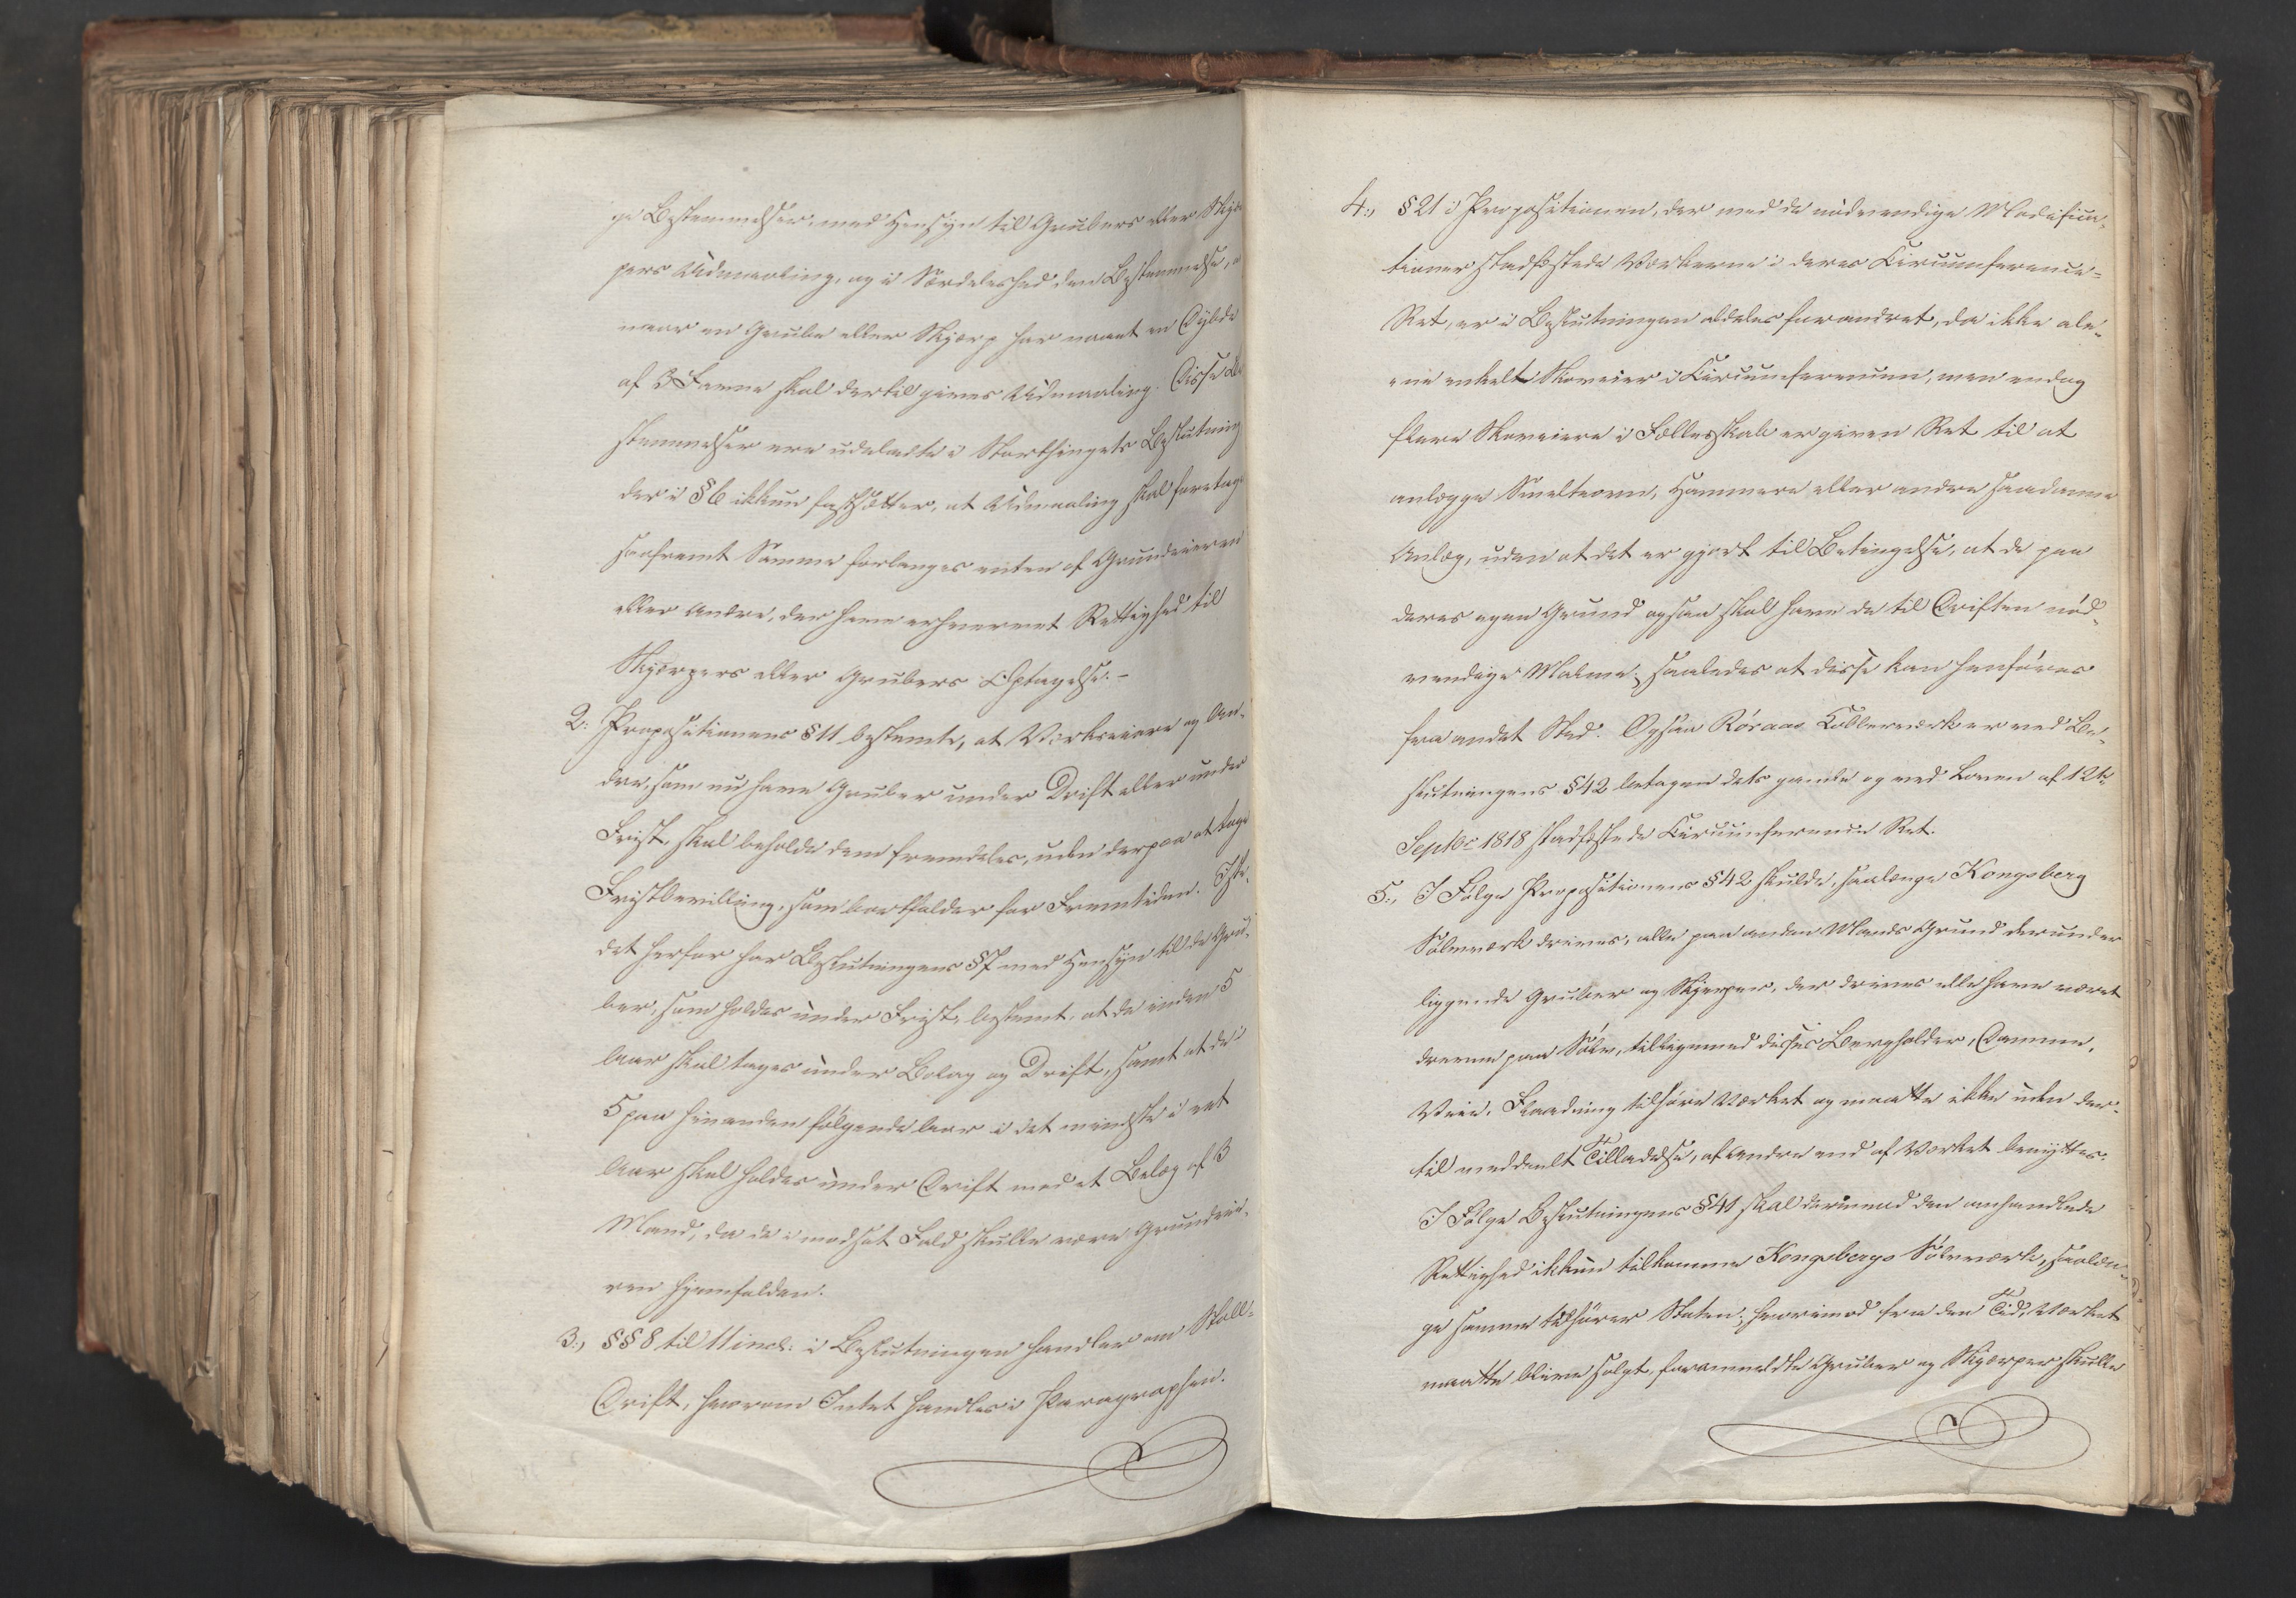 ge Bestemmelser med Hensyn til Grubers eller Skjær
pers Udmaaling, og i Særdeleshed den Bestemmelse, a
naar en Grube eller Skjærp har naaet en Dybde
af 3 Favne skal dertil gives Udmaaling. Disse Be
stemmelser ere udeladte i Storthingets Beslutning
der i § 6 ikkun fastsætter, at Udmaaling skal foretages
saafremt Samme forlanges enten af Grundeieren
eller Andre, der have erhvervet Rettighed til
Skjærpers eller Grubers Optagelse. -
2: Propositionens § 11 bestemte, at Værkseiere og An-
dre, som nu have Gruber under Drift eller under
Frist, skal beholde dem fremdeles, uden derpaa at tage
Fristbevilling, som bortfalder for Fremtiden. Iste-
det herfor har Beslutningens § 7 med Hensyn til de Gru-
ber, som holdes under Frist, bestemt, at de inden 5
Aar skal tages under Belæg og Drift, samt at de i
5 paa hinanden følgende Aar i det mindste i eet
Aar skal holdes under Drift med et Belæg af 3
Mand, da de i modsat Fald skulle være Grundeie-
ren hjemfalden.
3:, §§ 8 til 11 incl: i Beslutningen handler om Stoll-
Drift, hvorom Intet handles i Paragraphen.
4:, § 21 i Propositionen, der med de nødvendige Modifica-
tioner stadfæstede Værkerne i deres Circumference-
Ret, er i Beslutningen aldeles forandret, da ikke ale-
ene enkelt Skoveier i Circumferencen, men endog
flere Skoveiere i Fællesskab er given Ret til at
anlægge Smelteovne, Hammere eller andre saadanne
Anlæg, uden at det er gjort til Betingelse, at de paa
deres egen Grund ogsaa skal have de til Driften nød-
vendige Malme, saaledes at disse kan henføres
fra andet Sted. Ogsaa Røraas Kobberværk er ved Be-
slutningens § 42 betagen dets gamle og ved Loven af 12te
Septbr 1818 stadfæstede Circumference Ret.
5:, I Følge Propositionens § 42 skulde, saalænge Kongsberg
Sølvværk drives, alle paa anden Mands Grund derunder
liggende Gruber og Skjerper, der drives eller have været
drevne paa Sølv, tilligemed disses Berghalder, Damme,
Veie, Flaadning tilhøre Værket og maatte ikke uden der-
til meddeelt Tilladelse, af Andre end af Værket benyttes.
I Følge Beslutningens § 41 skal derimod den omhandlede
Rettighed ikkun tilkomme Kongsbergs Sølvværk, saalæn-
ge samme tilhører Staten; hvorimod fra den Tid, Værket
maatte blive solgt, foranmeldte Gruber og Skjærper skulle